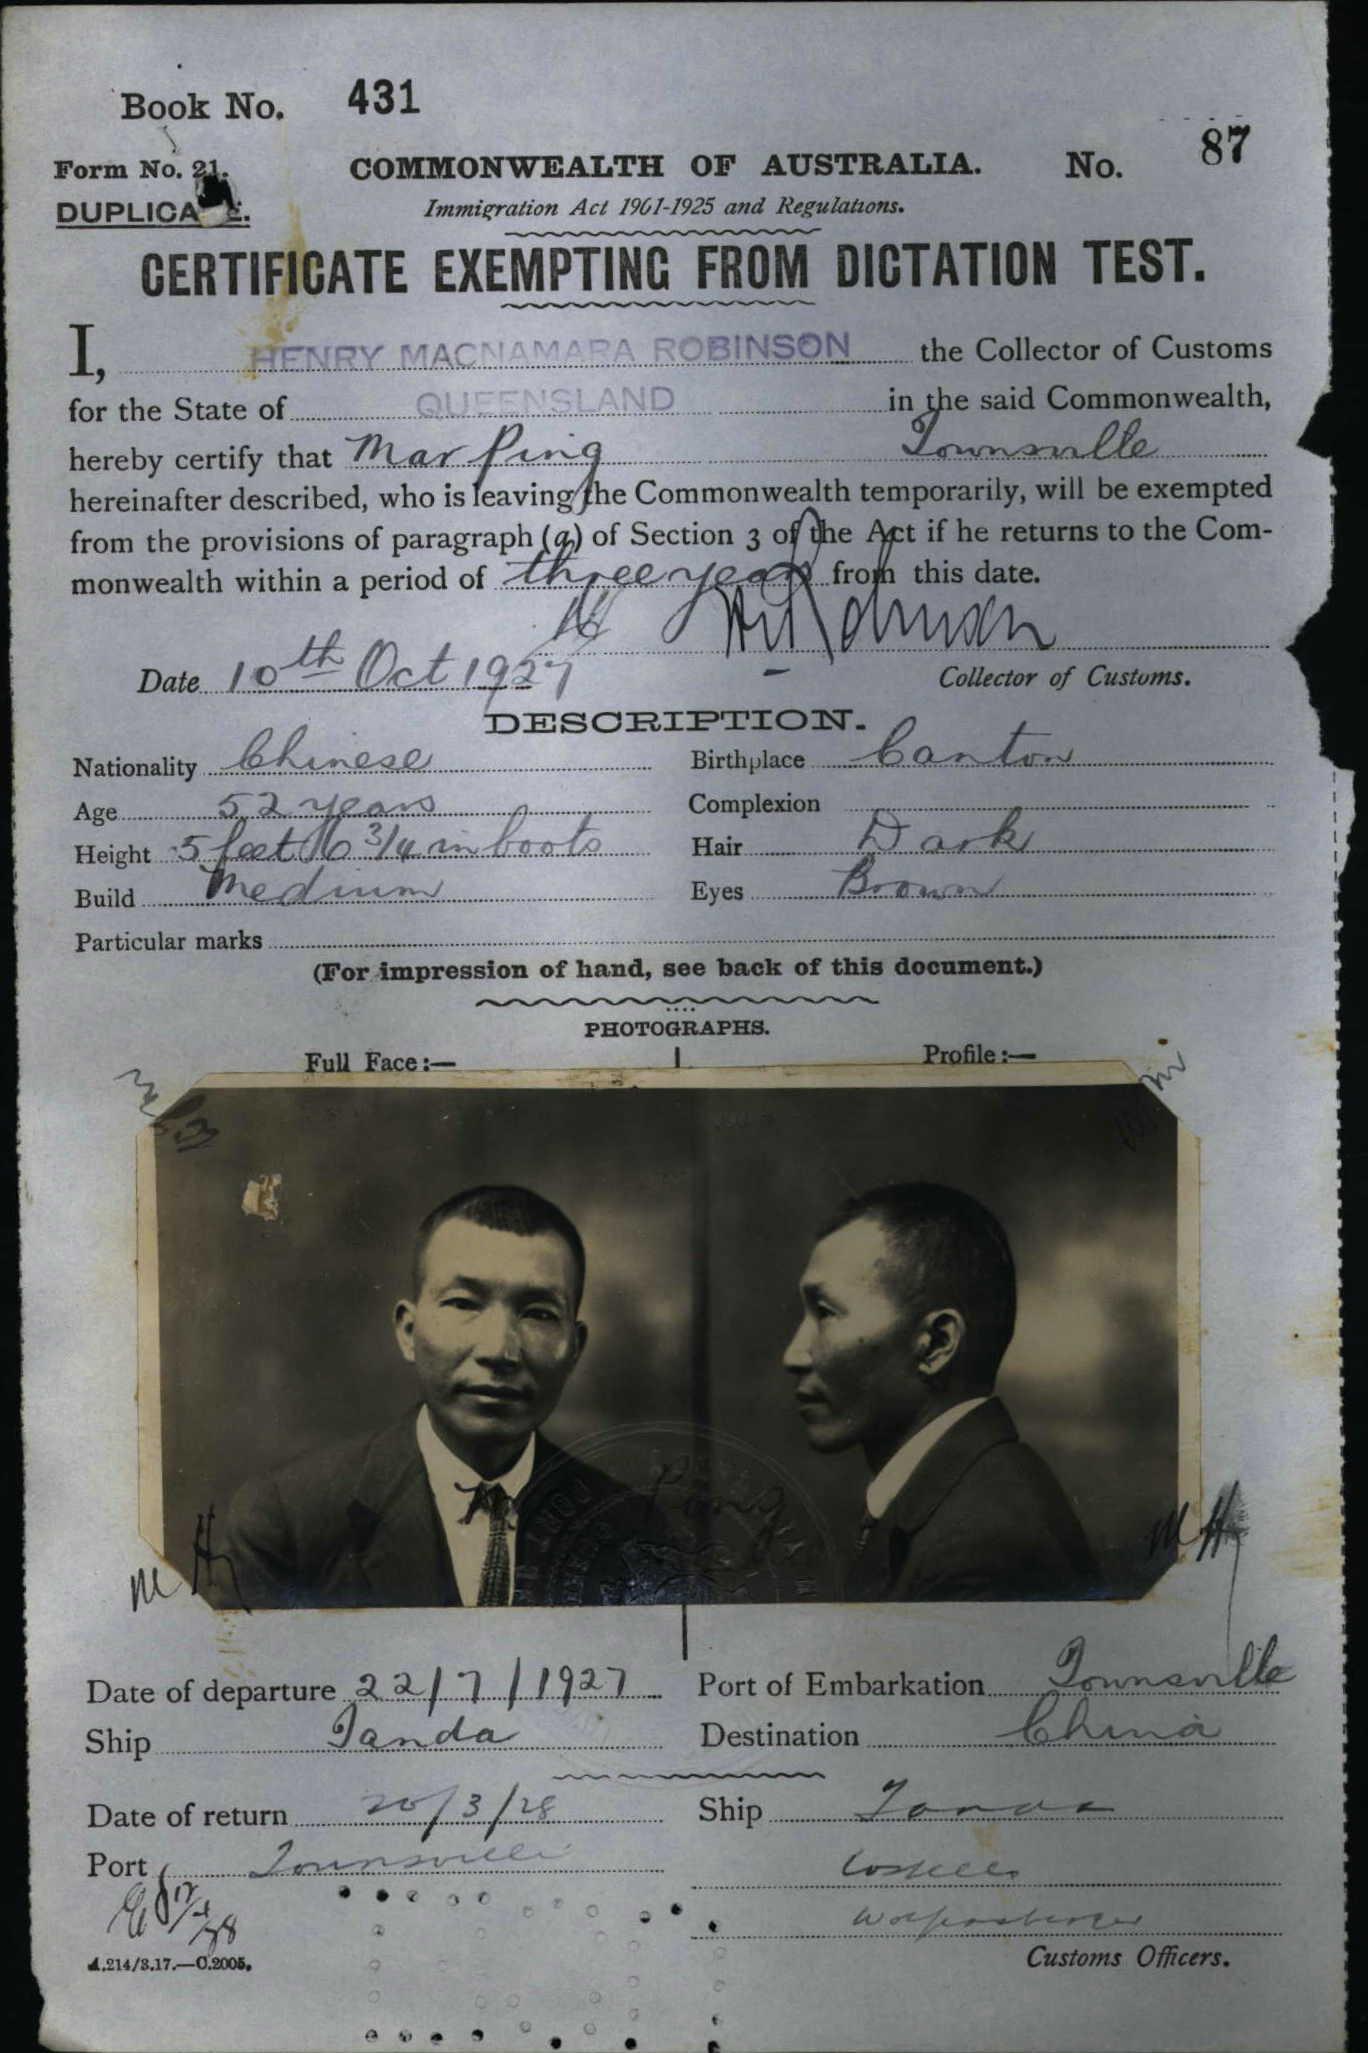 Book No. 431
87
Form No. 21.
COMMONWEALTH OF AUSTRALIA. No.
DUPLICATE.
Immigration Act 1901-1925 and Regulations.
CERTIFICATE EXEMPTING FROM DICTATION TEST.
I, HENRY MACNAMARA ROBINSON the Collector of Customs
for the State of QUEENSLAND in the said Commonwealth,
hereby certify that Mar Ping Townsville
hereinafter described, who is leaving the Commonwealth temporarily, will be exempted
from the provisions of paragraph (a) of Section 3 of the Act if he returns to the Com-
monwealth within a period of three years from this date.
Robinson
Date 10th Oct 1927 Collector of Customs.
DESCRIPTION.
Nationality Chinese Birthplace Canton
Age 52 years Complexion
Height 5 feet 6 3/4 in boots Hair Dark
Build Medium Eyes Brown
Particular marks
(For impression of hand, see back of this document.)
PHOTOGRAPHS.
Full Face:— Profile:—
Ping
M H M H
Date of departure 22/7/1927 Port of Embarkation Townsville
Ship Tanda Destination China
Date of return 20/3/28 Ship Tanda
Port Townsville
Customs Officers.
A.214/3.17.—C.2005.